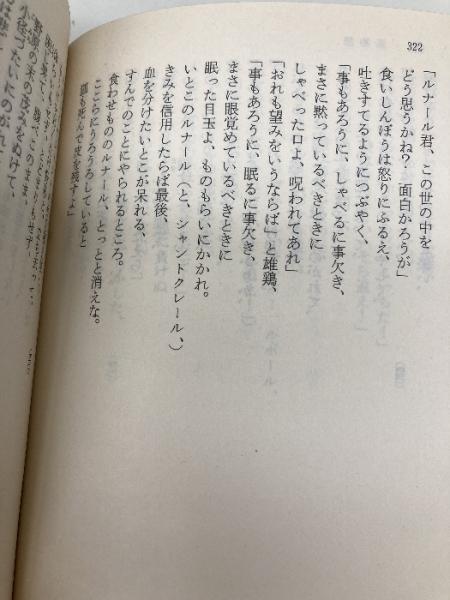 322
「ルナール君、この世の中を
どう思うかね?、面白かろうが」
食いしんぼうは怒りにふるえ、
吐きすてるようにつぶやく、
「事もあろうに、しゃべるに事欠き、
まさに黙っているべきときに
しゃべった口よ、呪われてあれ」
「おれも望みをいうならば」と雄鶏、
「事もあろうに、眠るに事欠き、
まさに眼覚めているべきときに
眠った目玉よ、ものもらいにかかれ。
いとこのルナール(と、シャントクレール、)
きみを信用したらば最後、
血を分けたいとこが呆れる、
すんでのことにやられるところ。
食わせもののルナール、とっとと消えな。
ここらにうろうろしていると
狐も死んで皮を残すよ」
小径づたいにのがれ、